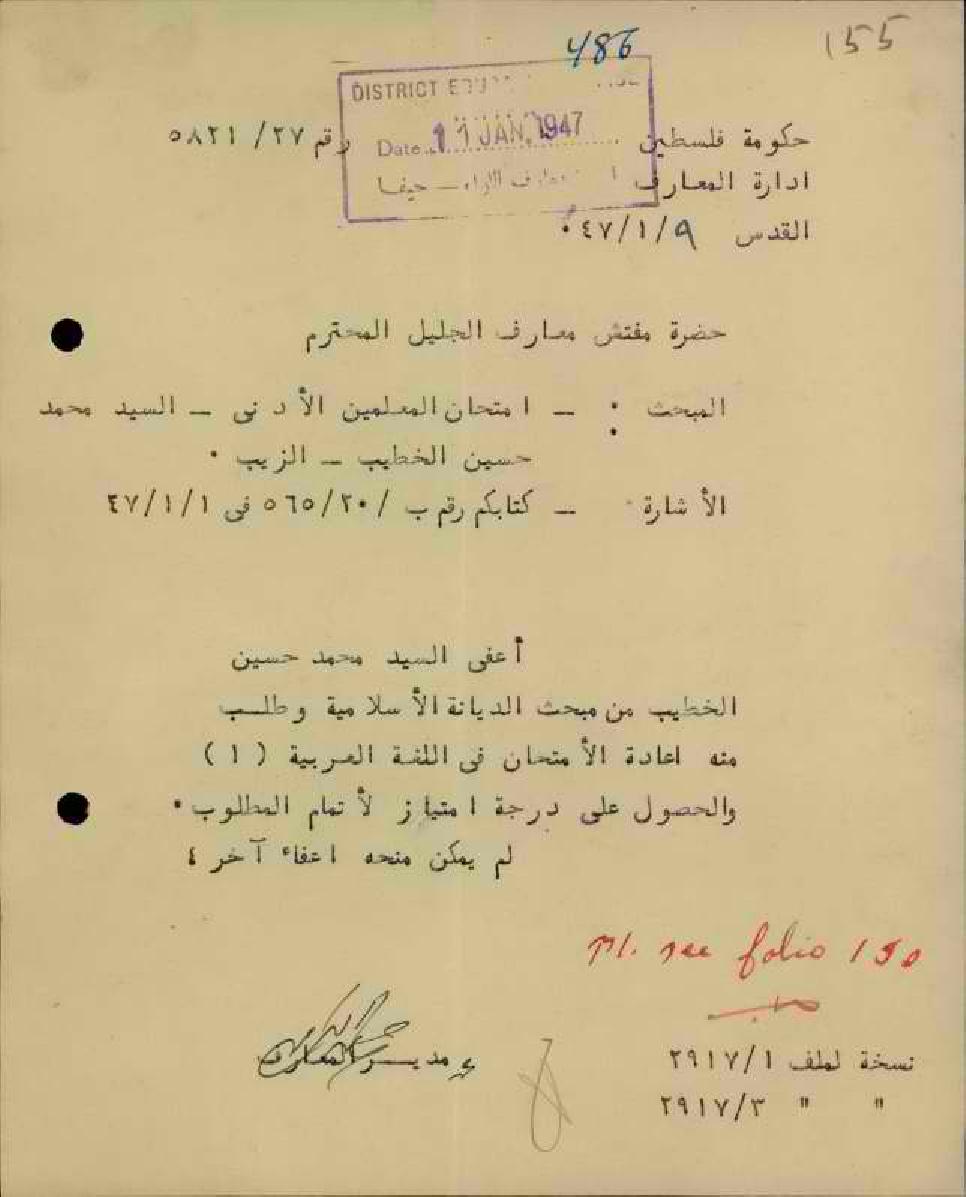 155
486
DISTRICT
Date 11 JAN 1947
حيفا
حكومة فلسطين رقم ٢٧/ ٥٨٢١
ادارة المعارف
القدس ٤٧/١/٩
حضرة مفتش معارف الجليل المحترم
المبحث : ـ امتحان المعلمين الأدنى ـ السيد محمد
حسين الخطيب ـ الزيب ٠
الأشارة ـ كتابكم رقم ب /٥٦٥/٢٠ فى ٤٧/١/١
أعفى السيد محمد حسين
الخطيب من مبحث الديانة الأسلامية وطلب
منه اعادة الأمتحان فى اللغة العربية (١)
والحصول على درجة امتياز لأتمام المطلوب ٠
لم يمكن منحه اعفاء آخر ٤
Pl. see folio 150
ع مدير المعارف
نسخة لملف ٢٩١٧/١
" " ٢٩١٧/٣